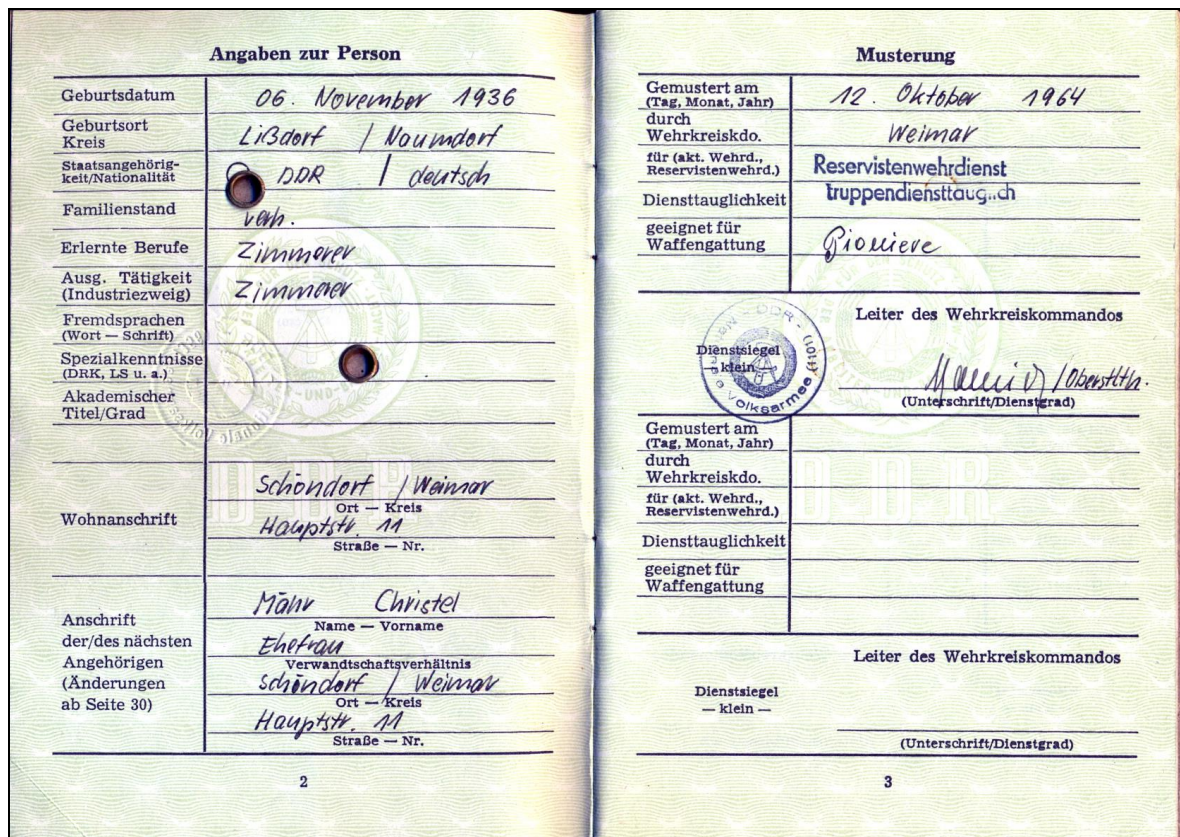 Angaben zur Person
Geburtsdatum 06. November 1936
Geburtsort
Kreis Lißdorf / Naumdorf
Staatsangehörig-
keit/Nationalität DDR / deutsch
Familienstand verh.
Erlernte Berufe Zimmerer
Ausg. Tätigkeit
(Industriezweig) Zimmerer
Fremdsprachen
(Wort — Schrift)
Spezialkenntnisse
(DRK, LS u. a.)
Akademischer
Titel/Grad
Wohnanschrift
Schöndorf / Weimar
Ort — Kreis
Hauptstr. 11
Straße — Nr.
Anschrift
der/des nächsten
Angehörigen
(Änderungen
ab Seite 30)
Mähr Christel
Name — Vorname
Ehefrau
Verwandtschaftsverhältnis
Schöndorf / Weimar
Ort — Kreis
Hauptstr. 11
Straße — Nr.
2
Musterung
Gemustert am
(Tag, Monat, Jahr) 12. Oktober 1964
durch
Wehrkreiskdo. Weimar
für (akt. Wehrd.,
Reservistenwehrd.) Reservistenwehrdienst
Diensttauglichkeit
geeignet für
Waffengattung Pioniere
Leiter des Wehrkreiskommandos
Dienstsiegel
— klein —
DDR
Volksarmee
/ Oberstltn.
(Unterschrift/Dienstgrad)
Gemustert am
(Tag, Monat, Jahr)
durch
Wehrkreiskdo.
für (akt. Wehrd.,
Reservistenwehrd.)
Diensttauglichkeit
geeignet für
Waffengattung
DDR
Leiter des Wehrkreiskommandos
Dienstsiegel
— klein —
(Unterschrift/Dienstgrad)
3